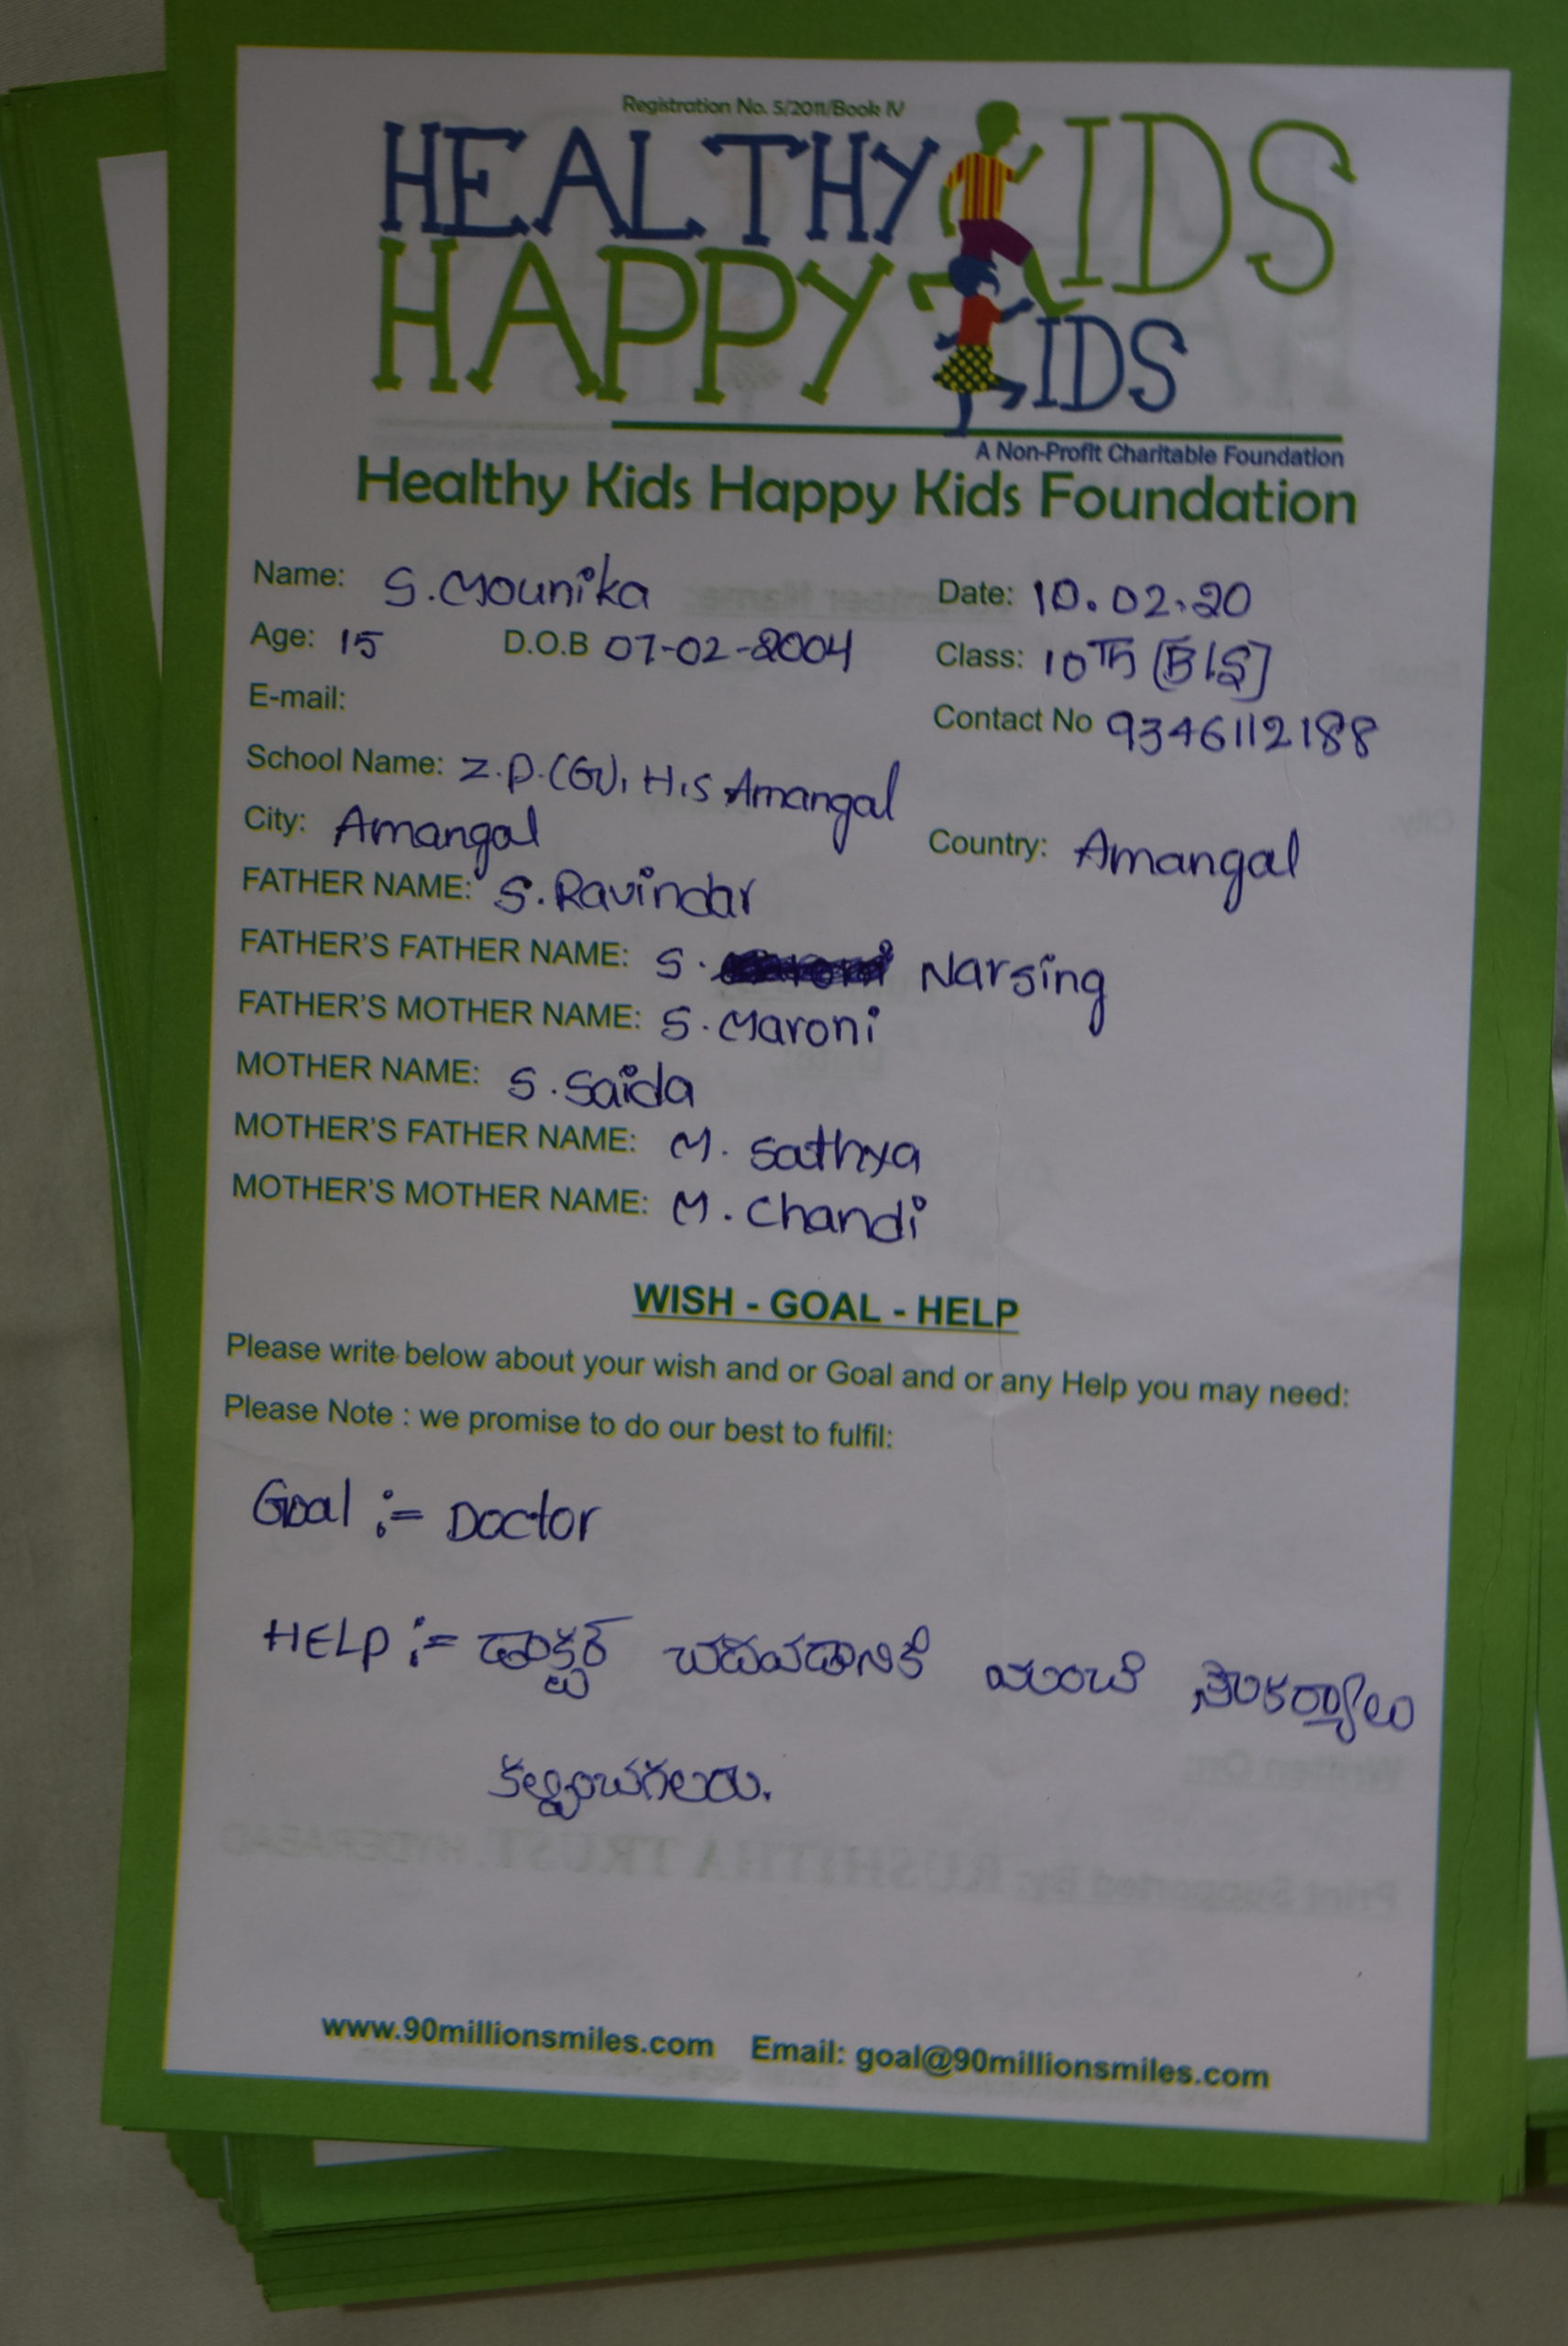 Registration No. 5/2011/Book IV
HEALTHY KIDS
HAPPY KIDS
A Non-Profit Charitable Foundation
Healthy Kids Happy Kids Foundation
Name: S.Mounika Date: 10.02.20
Age: 15 D.O.B 07-02-2004 Class: 10Th
E-mail: Contact No 9346112188
School Name: Z.P.(G), H.S Amangal
City: Amangal Country: Amangal
FATHER NAME: S.Ravindar
FATHER'S FATHER NAME: S. Narsing
FATHER'S MOTHER NAME: S.Maroni
MOTHER NAME: S.Saida
MOTHER'S FATHER NAME: M. Sathya
MOTHER'S MOTHER NAME: M. Chandi
WISH - GOAL - HELP
Please write below about your wish and or Goal and or any Help you may need:
Please Note : we promise to do our best to fulfil:
Goal :- Doctor
HELP :- డాక్టర్ చదవడానికి మంచి సౌకర్యాలు
కల్పించగలరు.
www.90millionsmiles.com Email: goal@90millionsmiles.com